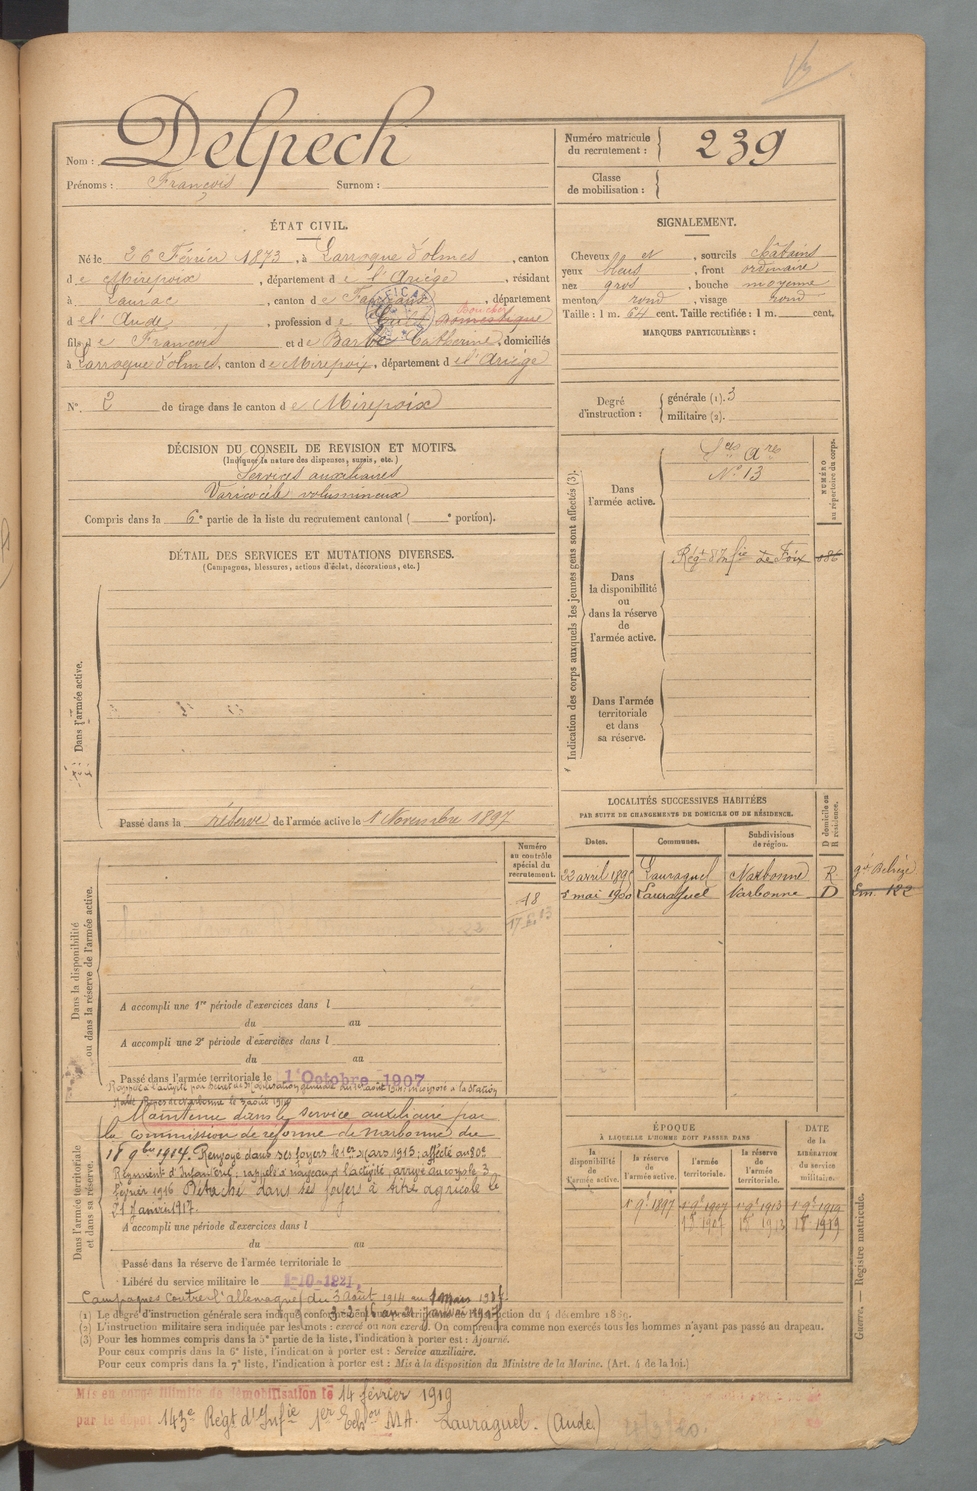 Nom : Delpech
Prénoms : François Surnom :
Numéro matricule du recrutement : 239
Classe de mobilisation :
ÉTAT CIVIL.
Né le 26 Février 1873, à Larroque d'olmes, canton
de Mirepoix, département de l'Ariège, résidant
à Laurac, canton de Fanjeaux, département
de l'Aude, profession de Cult. domestique
Boucher
fils de François et de Barbe Catherine, domiciliés
à Larroque d'olmes, canton de Mirepoix, département de l'Ariège
N° 2 de tirage dans le canton de Mirepoix
SIGNALEMENT.
Cheveux et, sourcils châtains
yeux bleus, front ordinaire
nez gros, bouche moyenne
menton rond, visage rond
Taille : 1 m. 64 cent. Taille rectifiée : 1 m. cent.
MARQUES PARTICULIÈRES :
Degré d'instruction : générale (1). 3
militaire (2).
DÉCISION DU CONSEIL DE REVISION ET MOTIFS.
(Indiquer la nature des dispenses, sursis, etc.)
Services auxiliaires
Varicocèle volumineux
Compris dans la 6e partie de la liste du recrutement cantonal ( e portion).
DÉTAIL DES SERVICES ET MUTATIONS DIVERSES.
(Campagnes, blessures, actions d'éclat, décorations, etc.)
Dans l'armée active.
Passé dans la réserve de l'armée active le 1 Novembre 1897
Indication des corps auxquels les jeunes gens sont affectés (3).
NUMÉRO au répertoire du corps.
Dans l'armée active.
Ses Ares
N° 13
Dans la disponibilité ou dans la réserve de l'armée active.
Régt d'Infie de Foix 186
Dans l'armée territoriale et dans sa réserve.
LOCALITÉS SUCCESSIVES HABITÉES
PAR SUITE DE CHANGEMENTS DE DOMICILE OU DE RÉSIDENCE.
Dates. Communes. Subdivisions de région. D domicile ou R résidence.
22 avril Lauraguel Narbonne R
mai 1900 Lauraguel Narbonne D
Dans la disponibilité ou dans la réserve de l'armée active.
Numéro au contrôle spécial du recrutement.
18
A accompli une 1re période d'exercices dans l
du au
A accompli une 2e période d'exercices dans l
du au
Passé dans l'armée territoriale le 1 Octobre 1907
Dans l'armée territoriale et dans sa réserve.
Rappelé à l'activité par Décret de Mobilisation générale du 1er août 1914. Incorporé à la Station
Narbonne le 3 août 1914
Maintenu dans le service auxiliaire par
la commission de réforme de Narbonne du
18 9bre 1914. Renvoyé dans ses foyers le 1er mars 1915; affecté au 80e
Régiment d'Infanterie; rappelé à l'activité, arrivé au corps le 3
février 1916 Détaché dans ses foyers à titre agricole le
21 janvier 1917.
A accompli une période d'exercices dans l
du au
Passé dans la réserve de l'armée territoriale le
Libéré du service militaire le 1-10-1921.
Campagnes Contre l'allemagne du 3 Août 1914 au 1 mars 1915
ÉPOQUE
À LAQUELLE L'HOMME DOIT PASSER DANS
la disponibilité de l'armée active. la réserve de l'armée active. l'armée territoriale. la réserve de l'armée territoriale.
DATE de la LIBÉRATION du service militaire.
1 9e 1897 1 9e 1907 1 9e 1913 1 9e 1919
1907 1913 1919
(1) Le degré d'instruction générale sera indiqué
(2) L'instruction militaire sera indiquée par les mots : exercé ou non exercé. On comprendra comme non exercés tous les hommes n'ayant pas passé au drapeau.
(3) Pour les hommes compris dans la 5e partie de la liste, l'indication à porter est : Ajourné.
Pour ceux compris dans la 6e liste, l'indication à porter est : Service auxiliaire.
Pour ceux compris dans la 7e liste, l'indication à porter est : Mis à la disposition du Ministre de la Marine. (Art. 4 de la loi.)
Guerre. — Registre matricule.
Mis en congé illimité de démobilisation le 14 février 1919
par le dépôt 143e Régt d'Infie 1er Echon MA. Lauraguel. (Aude)